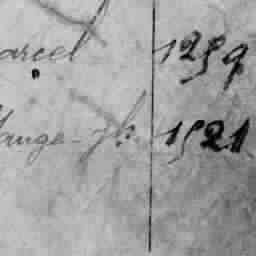 arcel 1259
auge-ph. 1521